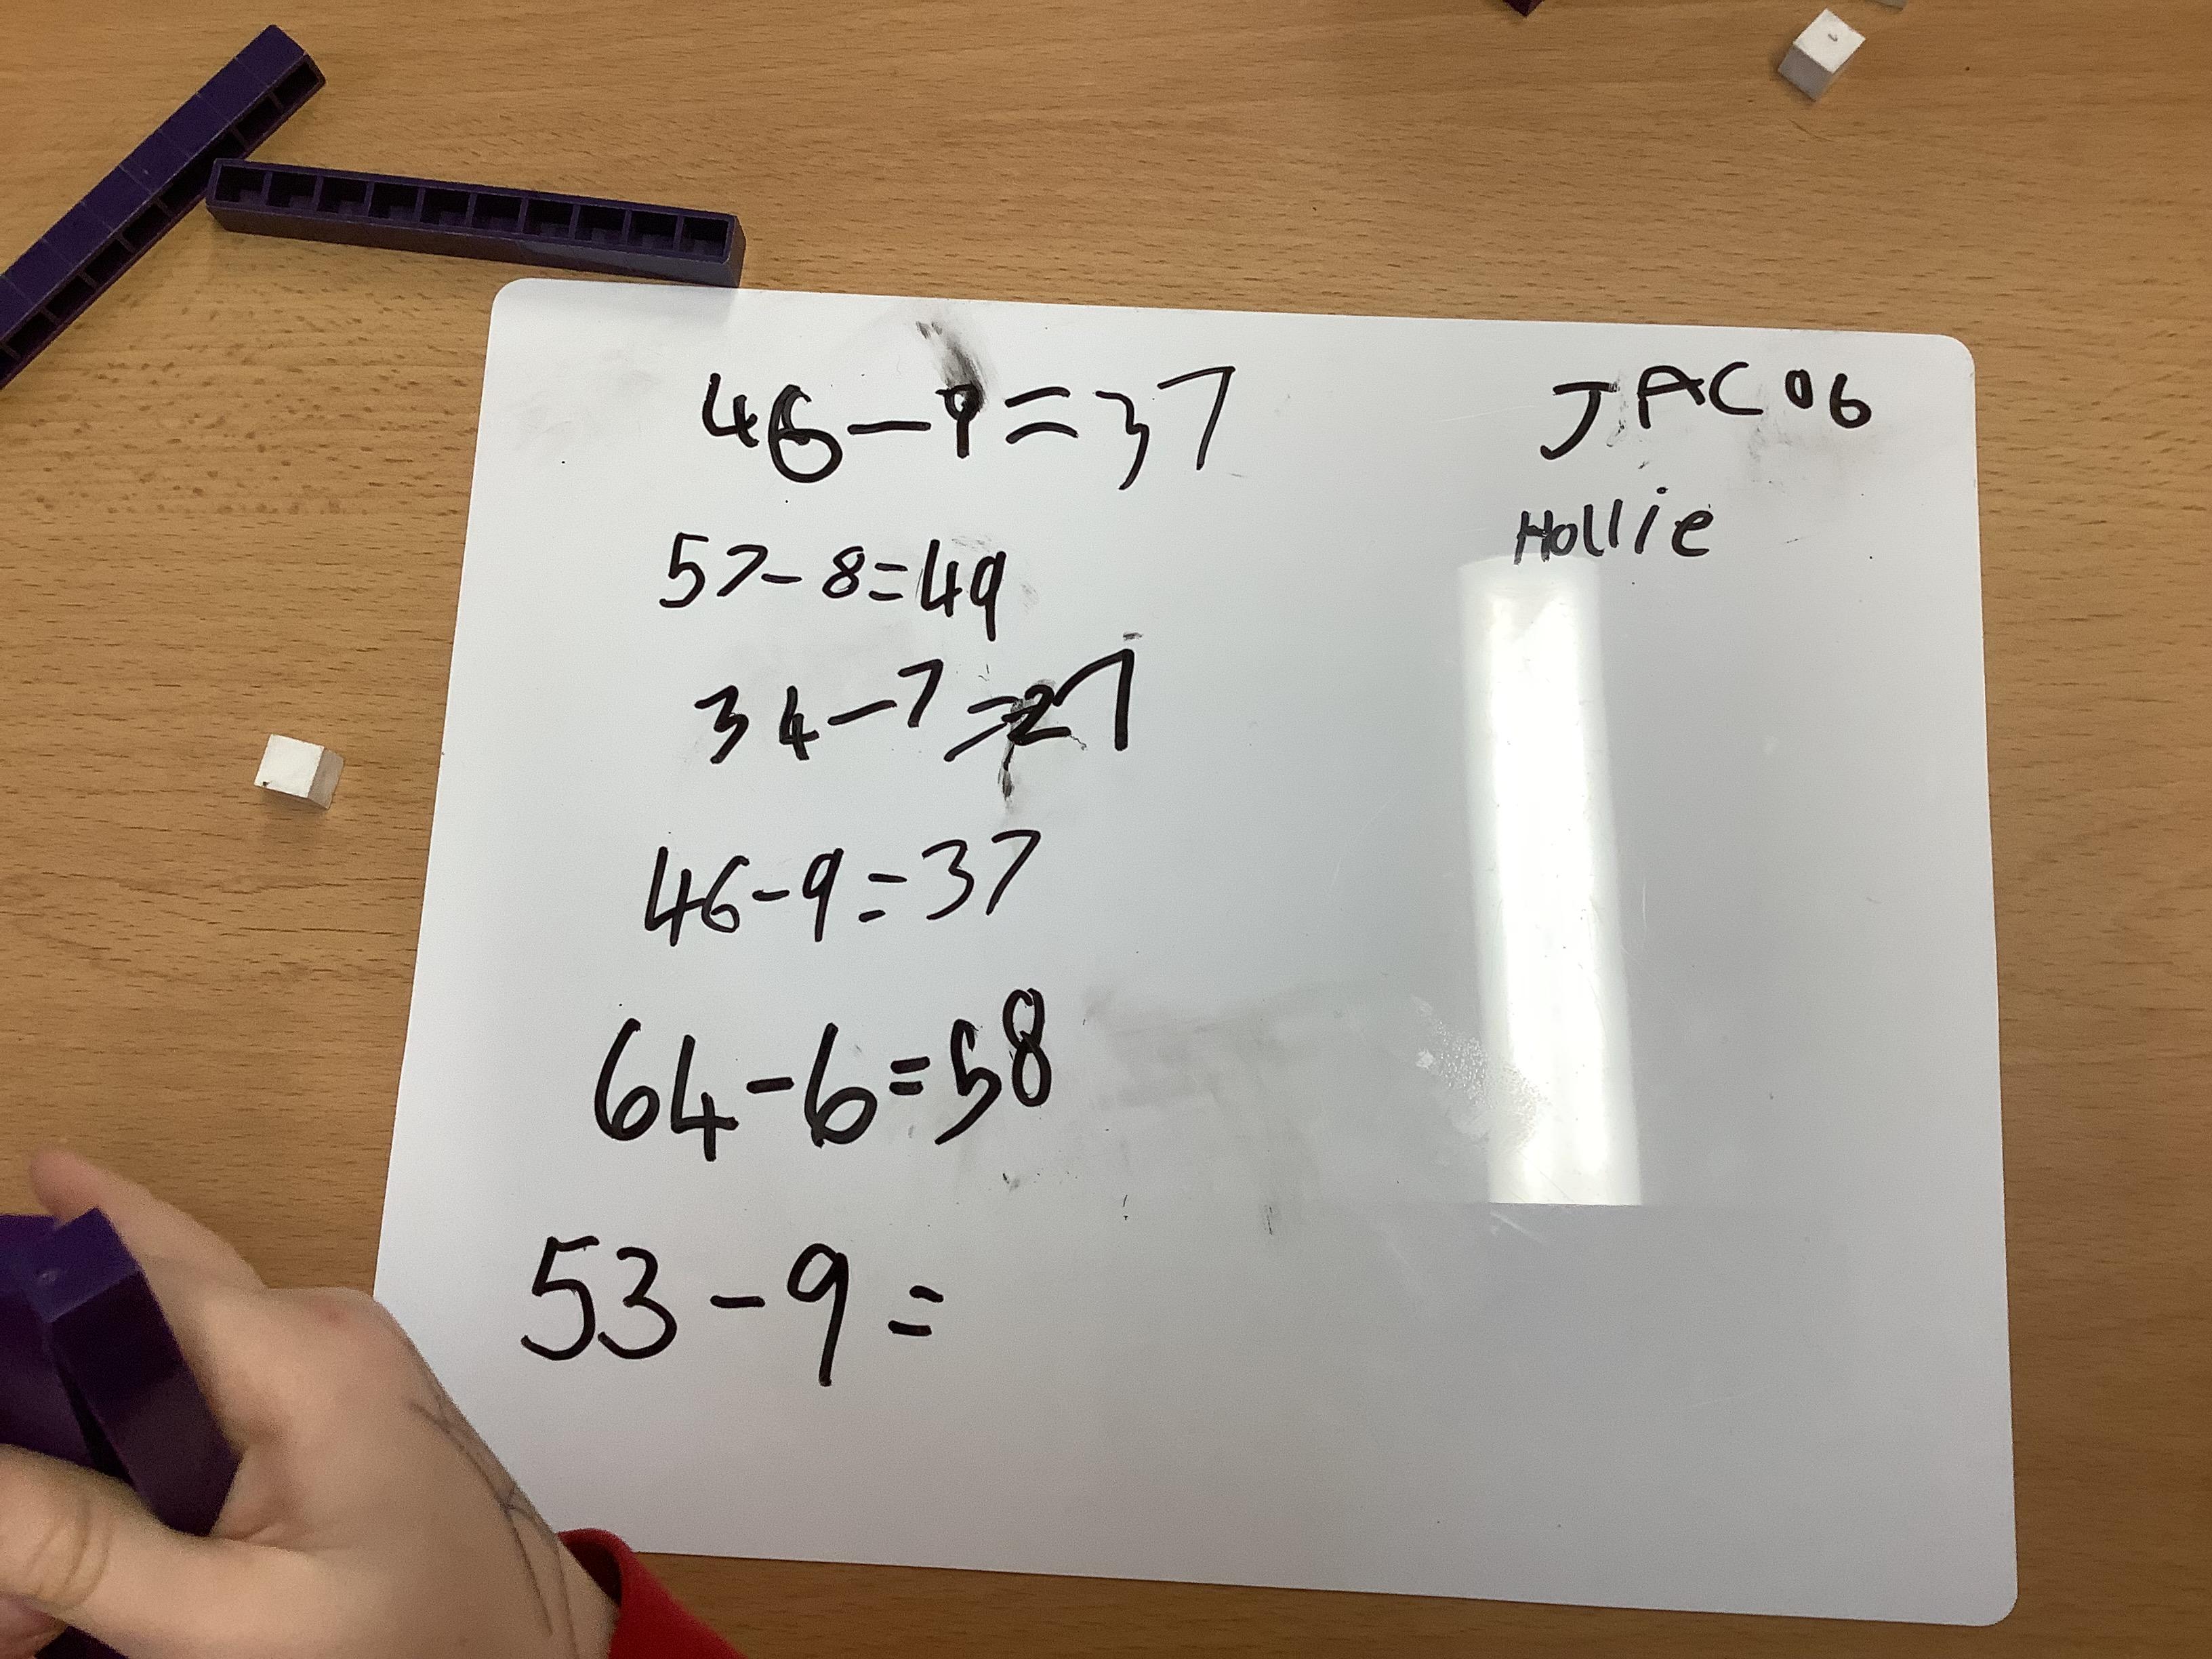 46-9=37
JACOb
Hollie
57-8=49
34-7=27
46-9=37
64-6=58
53-9=